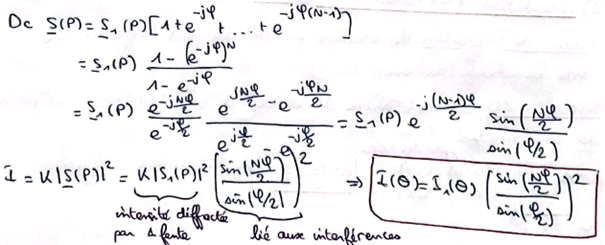 Dc S(P) = S₁(P) [1 + e^{-jφ} + ... + e^{-jφ(N-1)}]
= S₁(P) \frac{1 - (e^{-jφ})^N}{1 - e^{-jφ}}
= S₁(P) \frac{e^{-j\frac{Nφ}{2}}}{e^{-j\frac{φ}{2}}} \frac{e^{j\frac{Nφ}{2}} - e^{-j\frac{φN}{2}}}{e^{j\frac{φ}{2}} - e^{-j\frac{φ}{2}}} = S₁(P) e^{-j\frac{(N-1)φ}{2}} \frac{sin(\frac{Nφ}{2})}{sin(φ/2)}
I = K|S(P)|² = K|S₁(P)|² (\frac{sin(\frac{Nφ}{2})}{sin(φ/2)})² ⇒ I(θ) = I₁(θ) (\frac{sin(\frac{Nφ}{2})}{sin(\frac{φ}{2})})²
intensité diffractée
par 1 fente lié aux interférences